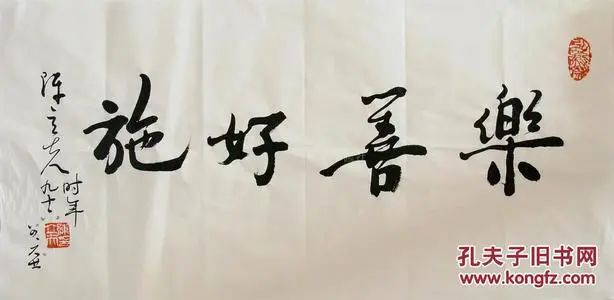 樂善好施
陳立夫
时年九十
孔夫子旧书网
www.kongfz.com